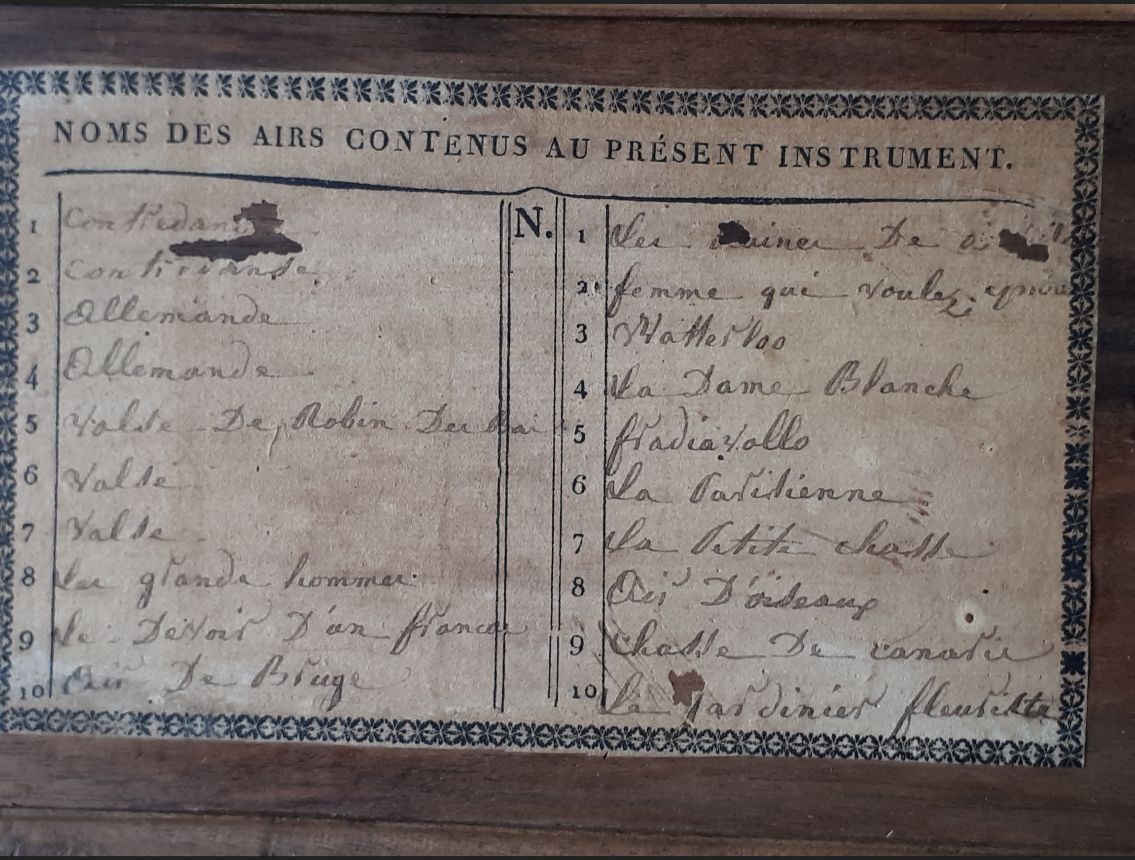 NOMS DES AIRS CONTENUS AU PRÉSENT INSTRUMENT.
N.
1 Contredan
2 Contredanse
3 Allemande
4 Allemande
5 Valse De Robin Des Bois
6 Valse
7 Valse
8 les grande hommes
9 le Devoir D'un francais
10 Air De Bruge
1 Les De
2 femme qui voulez
3 Watterloo
4 La Dame Blanche
5 fradiavollo
6 La Parisienne
7 La Petite chasse
8 Air D'oiseaux
9 Chasse De canarie
10 le jardinier fleuriste